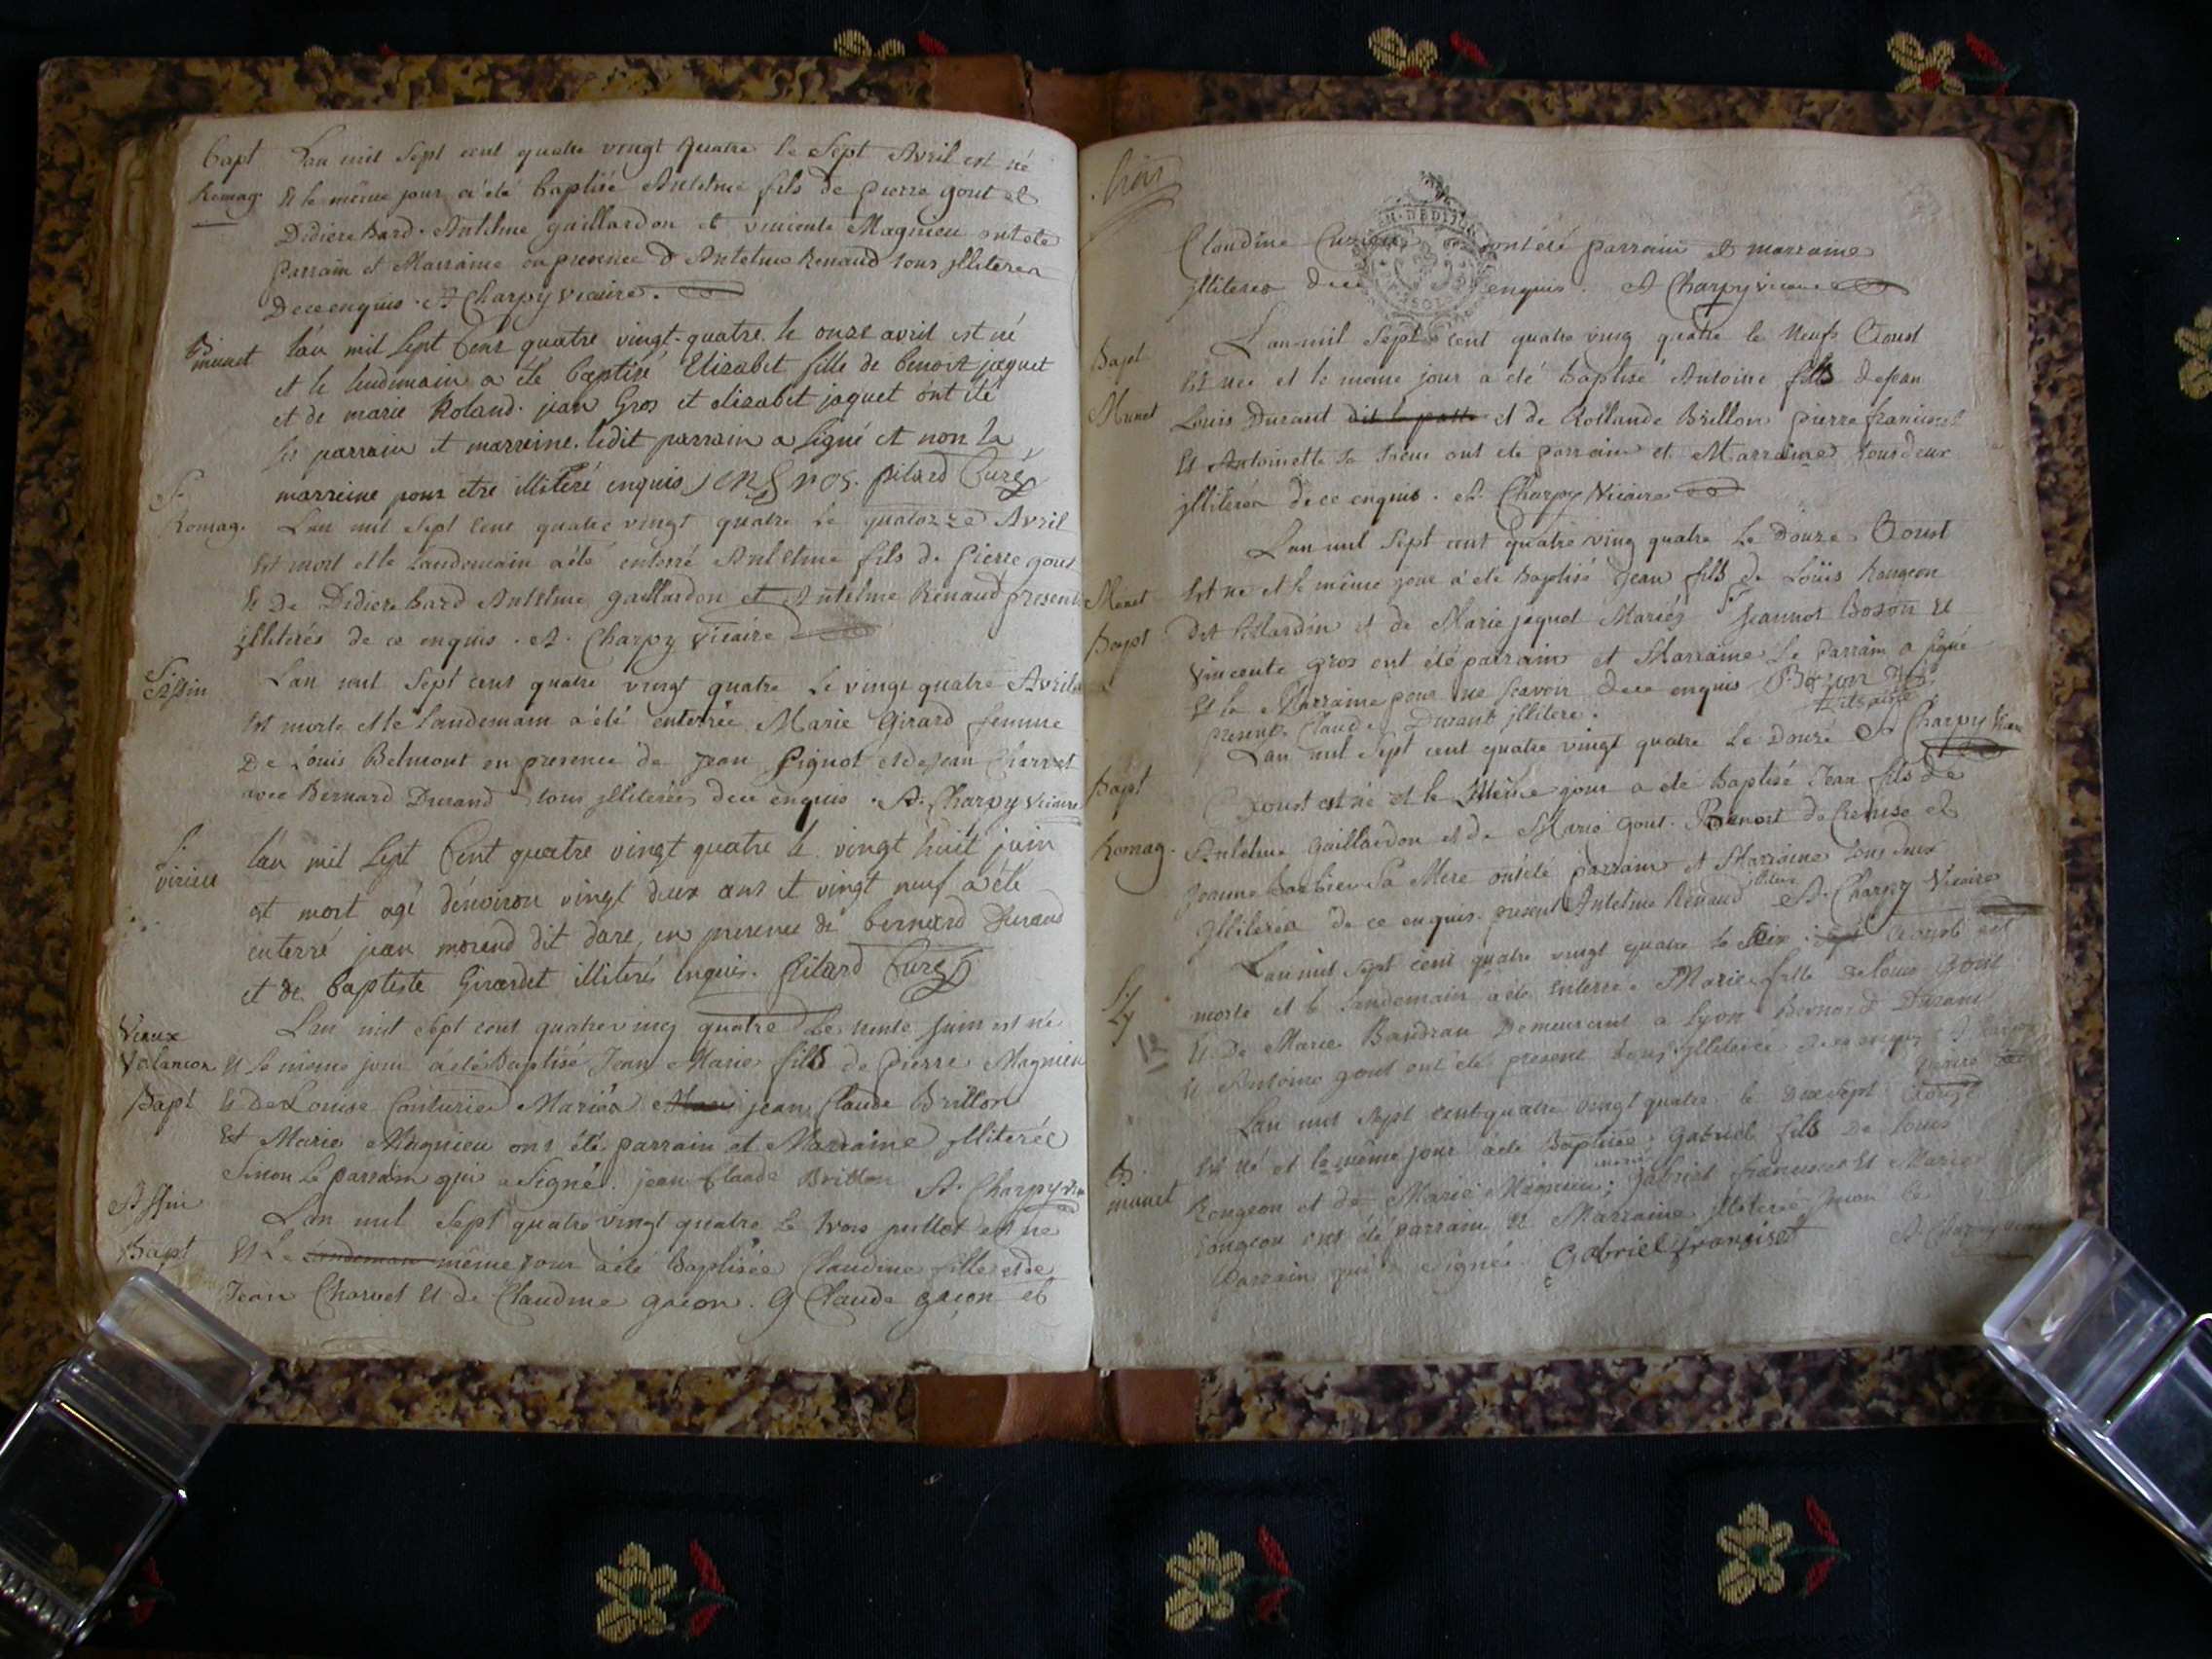 Bapt
Romag.
Lan mil sept cent quatre vingt quatre le sept Avril est né
Et le même jour a été baptisé Antelme fils de pierre gout et
Didiere bard. Antelme gaillardon et vincente Magnieu ont ete
parrain et Marraine en presence d'Antelme Renaud tous illiteres
De ce enquis. A Charpy vicaire.
B.
munet
l'an mil sept Cent quatre vingt-quatre. le onze avril est né
et le lendemain a été baptisé Elizabet fille de benoit jaquet
et de marie Roland. jean Gros et elizabet jaquet ont été
les parrain et marreine. ledit parrain a signé et non la
marreine pour etre illiteré enquis. pilard Curé
S.
Romag.
Lan mil sept cent quatre vingt quatre le quatorze Avril
Est mort et le landemain a été enterré Antelme fils de pierre gout
Et De Didiere bard Antelme gaillardon et Antelme Renaud presents
illiterés de ce enquis. A. Charpy Vicaire
S.
Lan mil sept cent quatre vingt quatre le vingt quatre Avril
Est morte et le landemain a été enterrée Marie Girard femme
De Louis Belmont en presence de Jean pignol et de Jean Charvet
avec Bernard Durand tous illiterées de ce enquis. A. Charpy Vicaire
S.
virieu
l'an mil sept Cent quatre vingt quatre le vingt huit juin
est mort agé d'environ vingt deux ans et vingt neuf a été
enterré jean morand dit dare, en presence de bernard Durand
et de baptiste Girardet illiterés enquis. pilard Curé
Vieux
Valancon
Bapt
Lan mil sept cent quatre ving quatre Le trente Juin est né
Et le même jour a été baptisé Jean Marie fils de pierre Magnieu
Et De Louise Couturier Mariés jean Claude Brillon
Et Marie Magnieu ont été parrain et Marraine illiterée
Sinon le parrain qui a signé. jean Claude Brillon A. Charpy
Bapt
Lan mil sept quatre vingt quatre le trois juillet est né
Et Le landemain même jour a été Baptisée Claudine fille de
Jean Charvet Et de Claudine gacon. Claude gacon et
trois
Claudine ont été parrain et marraine
illiteres de ce enquis. A Charpy vicaire
Bapt
Munet
Lan mil sept cent quatre ving quatre le Neuf Aoust
Est née et le meme jour a été Baptisé Antoine fils de Jean
Louis Durand et de Rollande Brillon pierre franciset
Et Antoinette sa soeur ont eté parrain et Marraine tous deux
illiteres de ce enquis. A. Charpy Vicaire
Munet
Bapt
Lan mil sept cent quatre ving quatre Le Douze Aoust
Est ne et le même jour a été Baptisé Jean fils de Loüis Rongeon
dit et de Marie jaquet Mariés Sr Jeannot Boson Et
vincente gros ont été parrain et Marraine le parrain a signé
Et la Marraine pour ne scavoir de ce enquis Boson
present Claude Durant illitere.
A Charpy
Bapt
Romag.
Lan mil sept cent quatre vingt quatre Le Douze
Aoust est né et le Même jour a été Baptisé Jean fils de
Antelme gaillardon et de Marie gout. Benoit de et
Jeanne barbier Sa Mere ont été parrain et Marraine tous deux
illiteres de ce enquis. present Antelme Renaud illitere A. Charpy Vicaire
S.
Ly
Lan mil sept cent quatre vingt quatre le Seize Aoust est
morte et le landemain a été enterrée Marie fille de Louis gout
Et De Marie Baudran Demeurant a Lyon Bernard Durand
Et Antoine gout ont été present tous illiterés de ce enquis
12
B.
munet
Lan mil sept cent quatre vingt quatre le Dix sept Aoust
Est né et le même jour a été Baptisée gabriel fils de Louis
Rongeon et de Marie Magnieu; gabriel francisset Et Marie
Rongeon ont été parrain Et Marraine illiteree sinon le
Parrain qui a signé. Gabriel francisset A Charpy